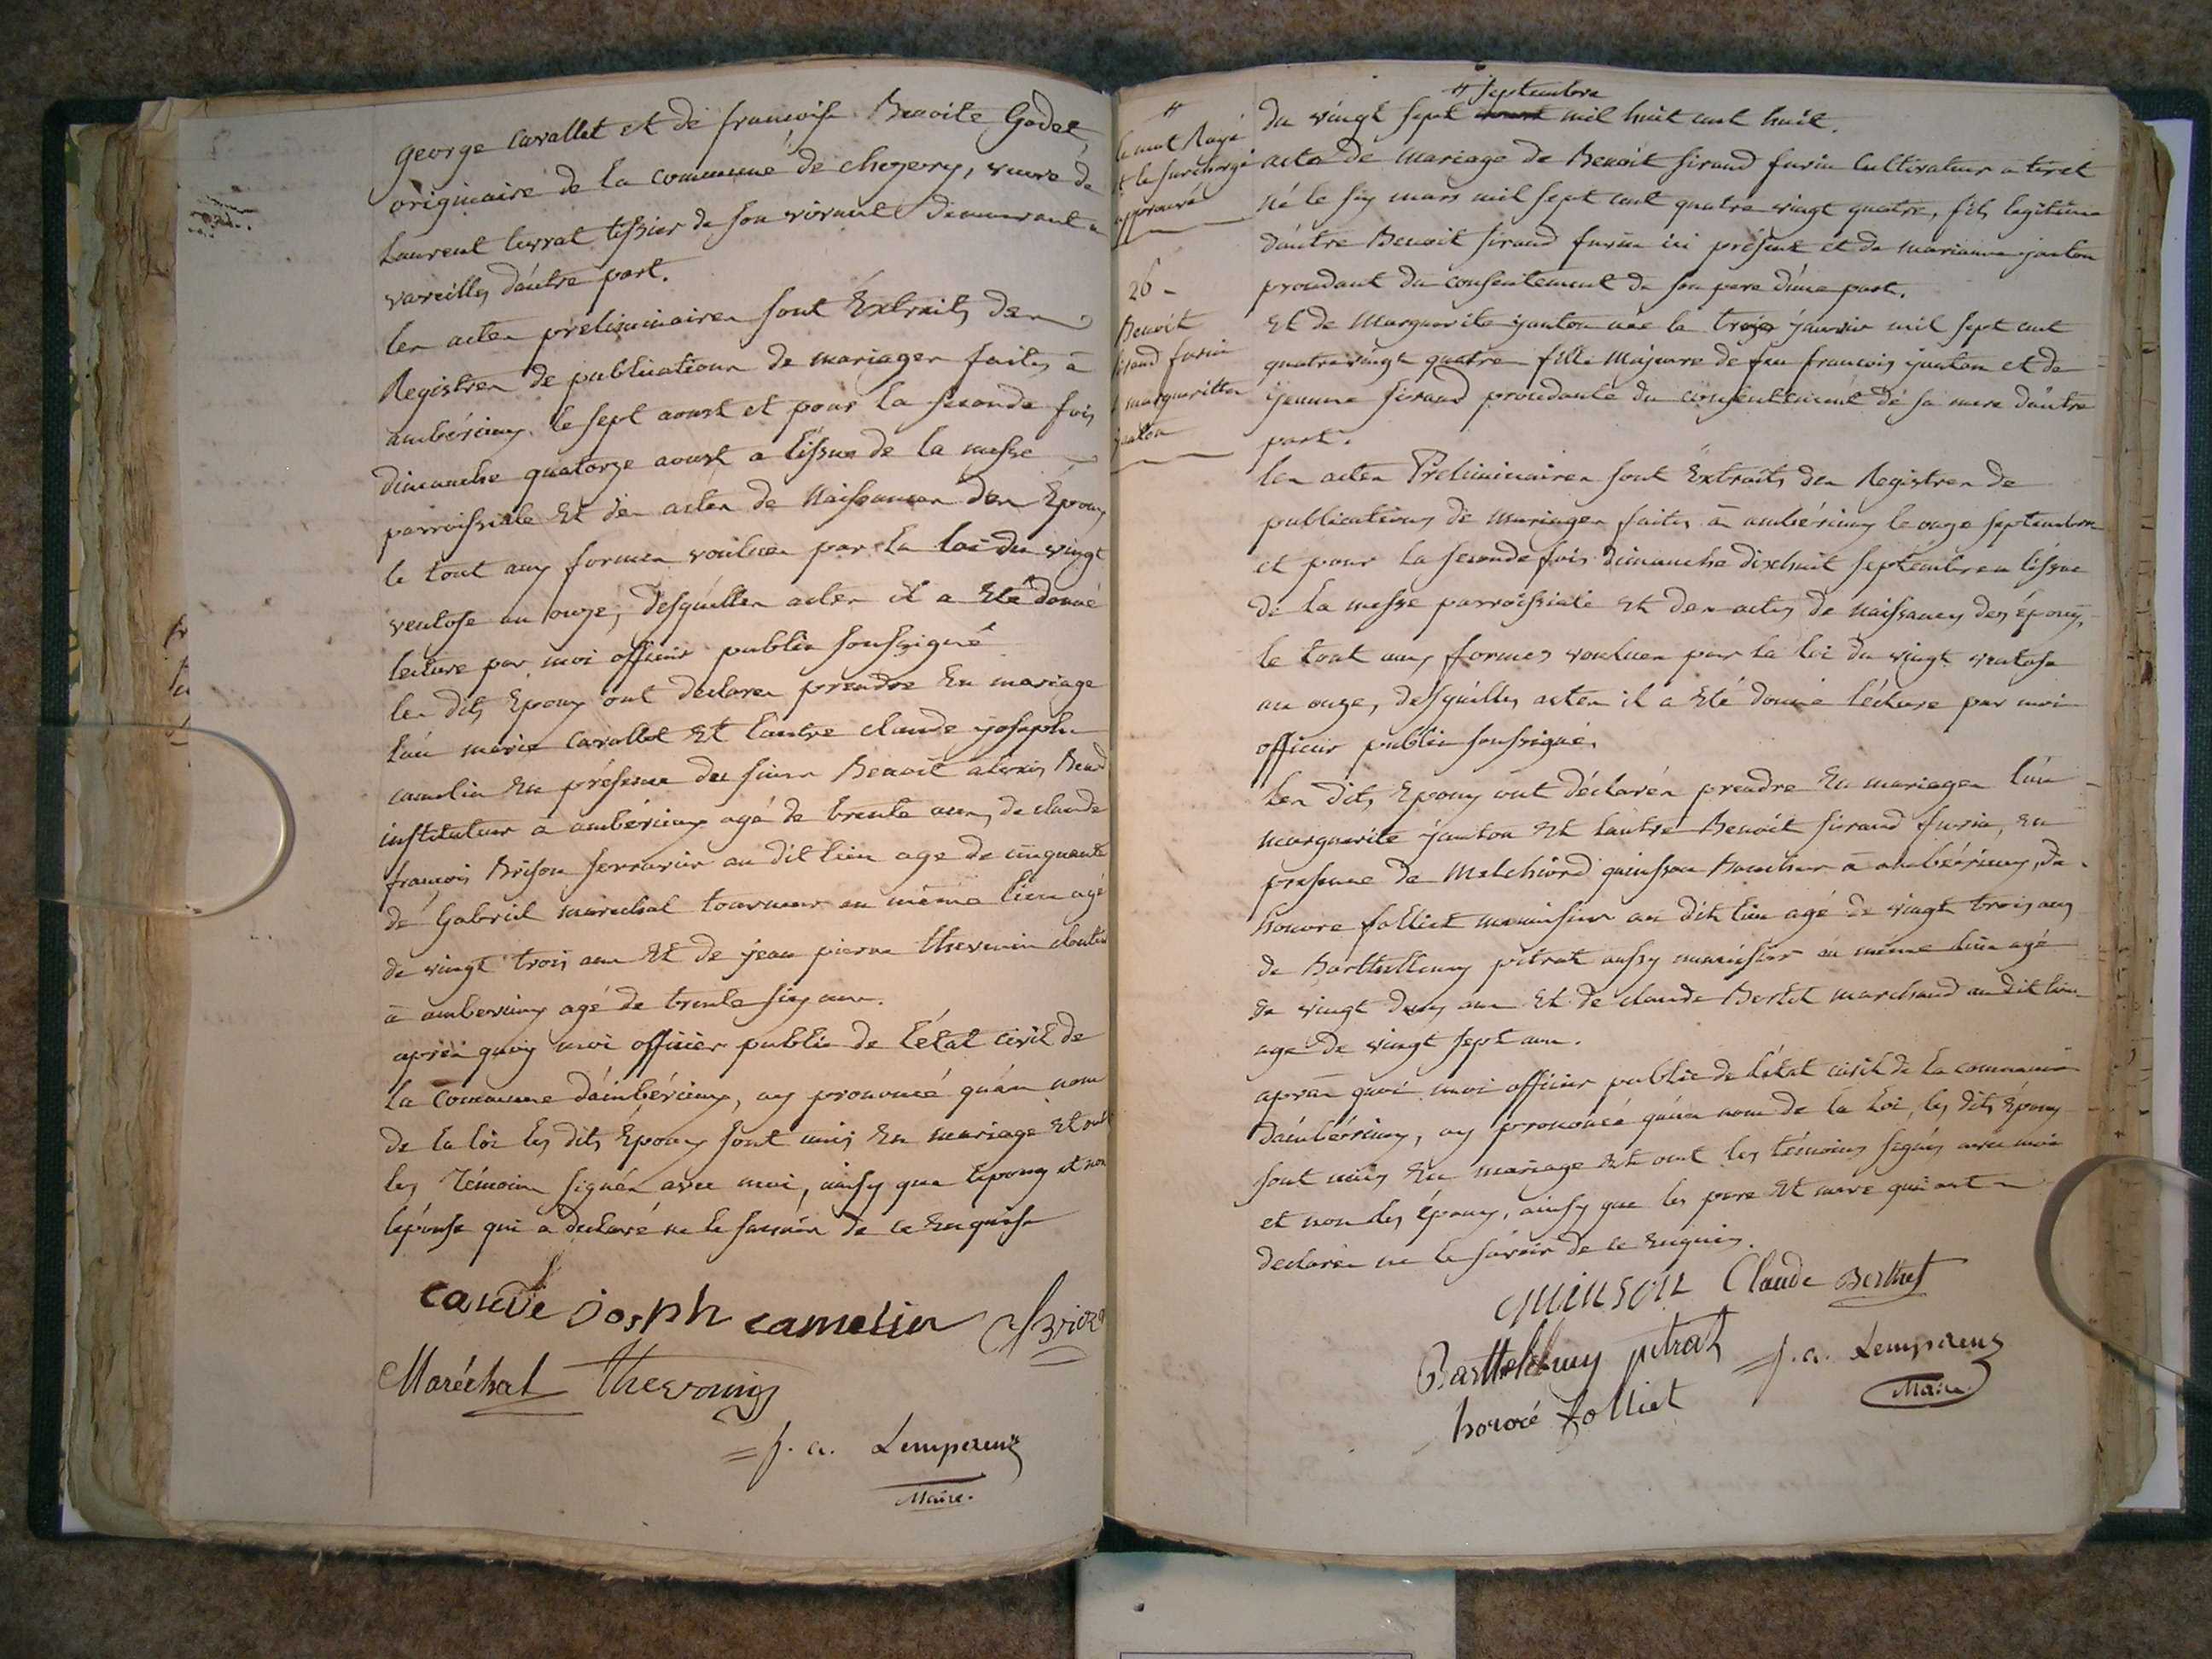 george Cavallet et de francoise Benoite Godet
originaire de la commune de chezery, veuve de
Laurent levrat tissier de son vivant demeurant a
vareilles d'autre part.
les actes preliminaires sont Extraits des
Registres de publications de mariages faites à
ambérieux le sept aoust et pour la seconde fois
dimanche quatorze aoust a l'issue de la messe
parroissiale Et des actes de Naissances des Epoux
le tout aux formes voulues par la loi du vingt
ventose an onze, desquelles actes il a Eté donné
lecture par moi officier public soussigné
les dits Epoux ont declarer prendre En mariage
l'un marie Cavallet Et l'autre claude joseph
camelin En présence des sieurs Benoit alexis
instituteur a ambérieux agé de trente ans, de claude
françois Brison serrurier au dit lieu age de cinquante
de Gabriel marechal tourneur au même lieu agé
de vingt trois ans Et de jean pierre thevenin cloutier
à amberieux agé de trente six ans.
après quoy moi officier public de l'état civil de
la commune d'ambérieux, ay prononcé qu'au nom
de la loi les dits Epoux sont unis En mariage Et ont
les Témoins signés avec moi, ainsy que l'epoux et non
l'épouse qui a declaré ne le savoir de ce Enquise
caude josph camelin
Maréchal Thevenin
j. a. Lempereur
Maire.
septembre
du vingt sept mil huit cent huit.
le mot Rayé
et le surchargé
approuvé
acte de mariage de Benoit sirand furin cultivateur a tiret
né le six mars mil sept cent quatre vingt quatre, fils legitime
d'autre Benoit sirand furin ici présent et de marianne janton
procedant du consentement de son pere d'une part.
26
Benoit
sirand furin
margueritte
janton
Et de Marguerite janton née le treize janvier mil sept cent
quatre vingt quatre fille Majeure de feu francois janton et de
jeanne sirand procedante du consentement de sa mere d'autre
part.
les actes Preliminaires sont Extraits des Registres de
publications de Mariages faites à ambérieux le onze septembre
et pour la seconde fois dimanche dixhuit septembre a l'issue
de la messe parroissiale Et des actes de naissances des époux,
le tout aux formes voulues par la loi du vingt ventose
an onze, desquelles actes il a Eté donné lecture par moi
officier public soussigné.
les dits Epoux ont déclarés prendre En mariages l'un
marguerite janton Et l'autre Benoit sirand furin, En
presence de Melchiord quinson Boucher à ambérieux, de
honore folliet menuisier au dit lieu agé de vingt trois ans
de Barthellemy pitrat aussy menuisier au même lieu agé
de vingt deux ans Et de claude Bertet marchand au dit lieu
age de vingt sept ans.
après quoi moi officier public de l'état civil de la commune
d'ambérieux, ay prononcé qu'au nom de la Loi, les dits Epoux
sont unis En mariage Et ont les témoins signés avec moi
et non les époux, ainsy que les pere Et mere qui ont
declarés ne le savoir de ce Enquis.
quinson Claude Berthet
Barthelemy pitrat j. a. Lempereur
honoré folliet Maire